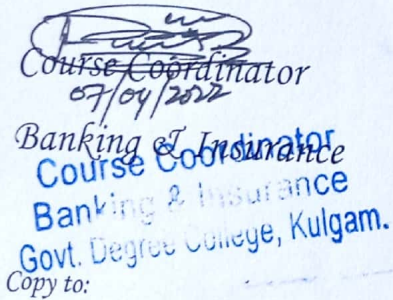 Course Coordinator
07/04/2022
Banking & Insurance
Course Coordinator
Banking & Insurance
Govt. Degree College, Kulgam.
Copy to: